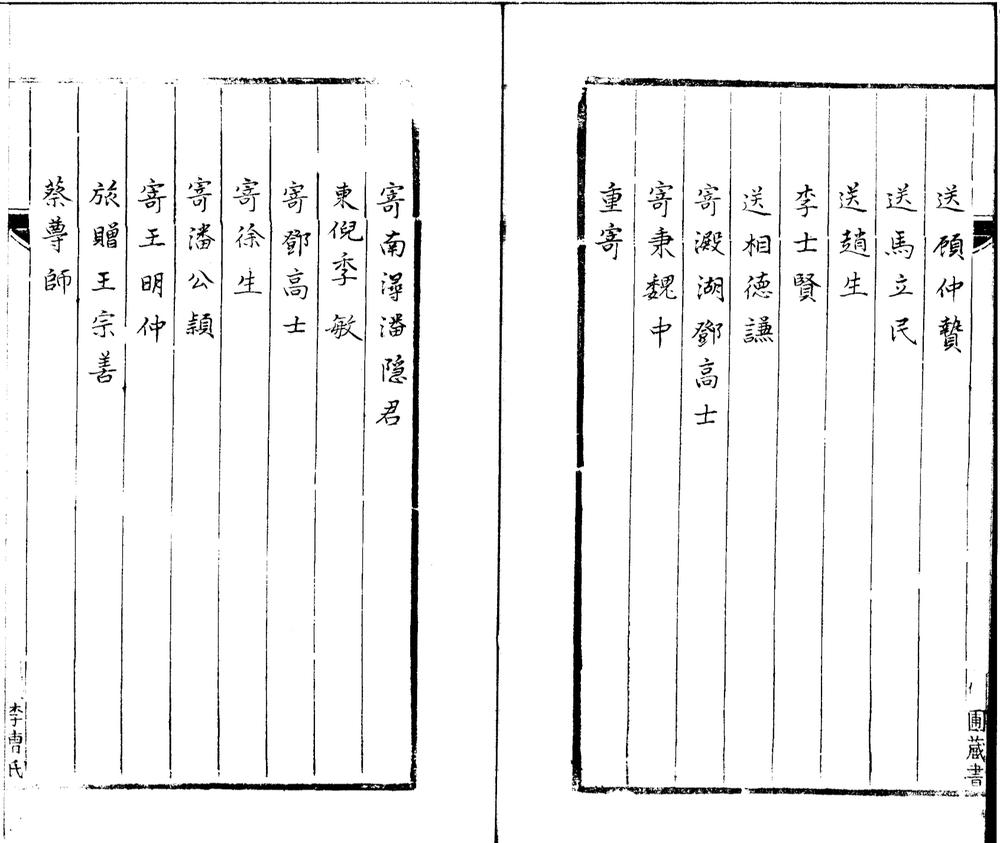 送顾仲贄
送馬立民
送趙生
李士賢
送相德謙
寄澱湖鄧高士
寄秉魏中
重寄
圃蕆書
寄南潯潘隐君
東倪季敏
寄鄧高士
寄徐生
寄潘公頴
寄王明仲
旅贈王宗善
蔡蓴師
李曹氏